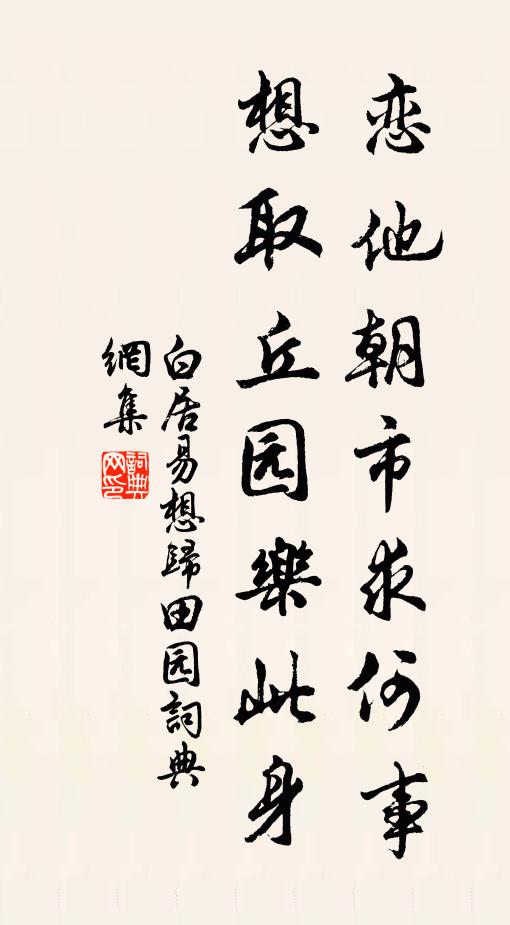 恋他朝市求何事
想取丘园樂此身
白居易想歸田园詞典
網集
詞典
网印